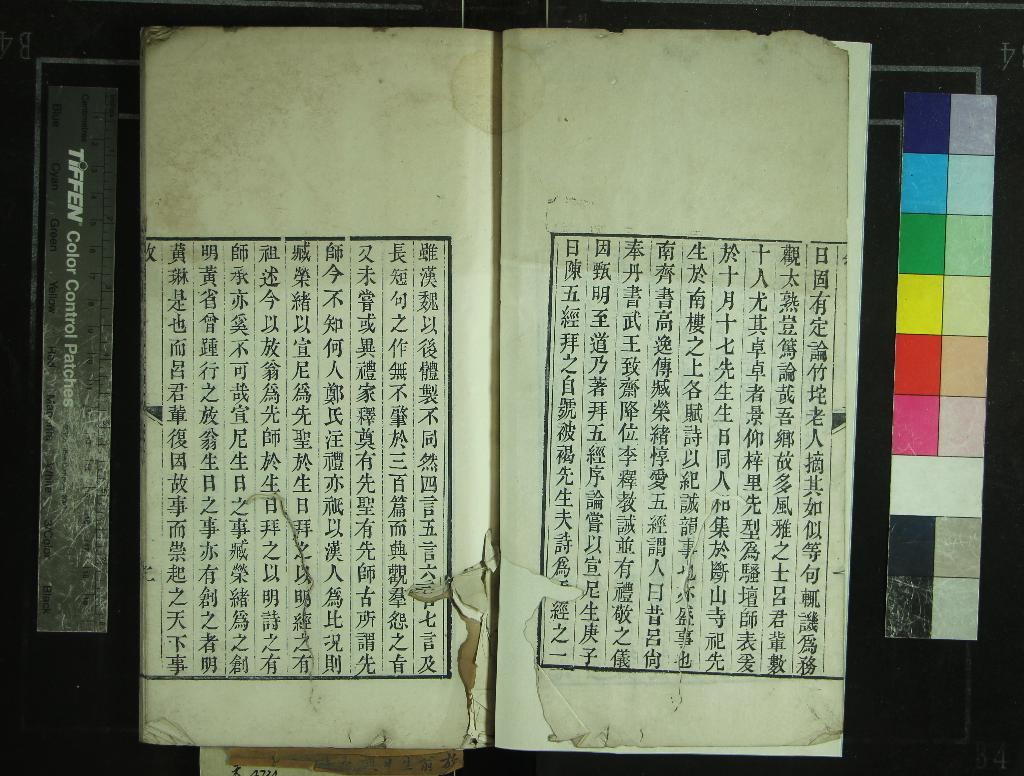 日固有定論竹垞老人摘其如似等句輒譏爲務
觀太熟豈篤論哉吾鄉故多風雅之士呂君輩數
十人尤其卓卓者景仰梓里先型爲騷壇師表爰
於十月十七先生生日同人和集於斷山寺祀先
生於南樓之上各賦詩以紀誠韻事也亦盛事也
南齊書高逸傳臧榮緒惇愛五經謂人曰昔呂尙
奉丹書武王致齋降位李釋教誡並有禮敬之儀
因甄明至道乃著拜五經序論嘗以宣尼生庚子
日陳五經拜之自號被褐先生夫詩爲五經之一
雖漢魏以後體製不同然四言五言六言七言及
長短句之作無不肇於三百篇而興觀羣怨之旨
又未嘗或異禮家釋奠有先聖有先師古所謂先
師今不知何人鄭氏注禮亦祇以漢人爲比況則
臧榮緖以宣尼爲先聖於生日拜之以明經之有
祖述今以放翁爲先師於生日拜之以明詩之有
師承亦奚不可哉宣尼生日之事臧榮緖爲之創
明黃省曾踵行之放翁生日之事亦有創之者明
黃琳是也而呂君輩復因故事而崇起之天下事
TIFFEN Color Control Patches
Blue
Cyan
Green
Yellow
Red
Magenta
White
3/Color
Black
Centimetres
B4